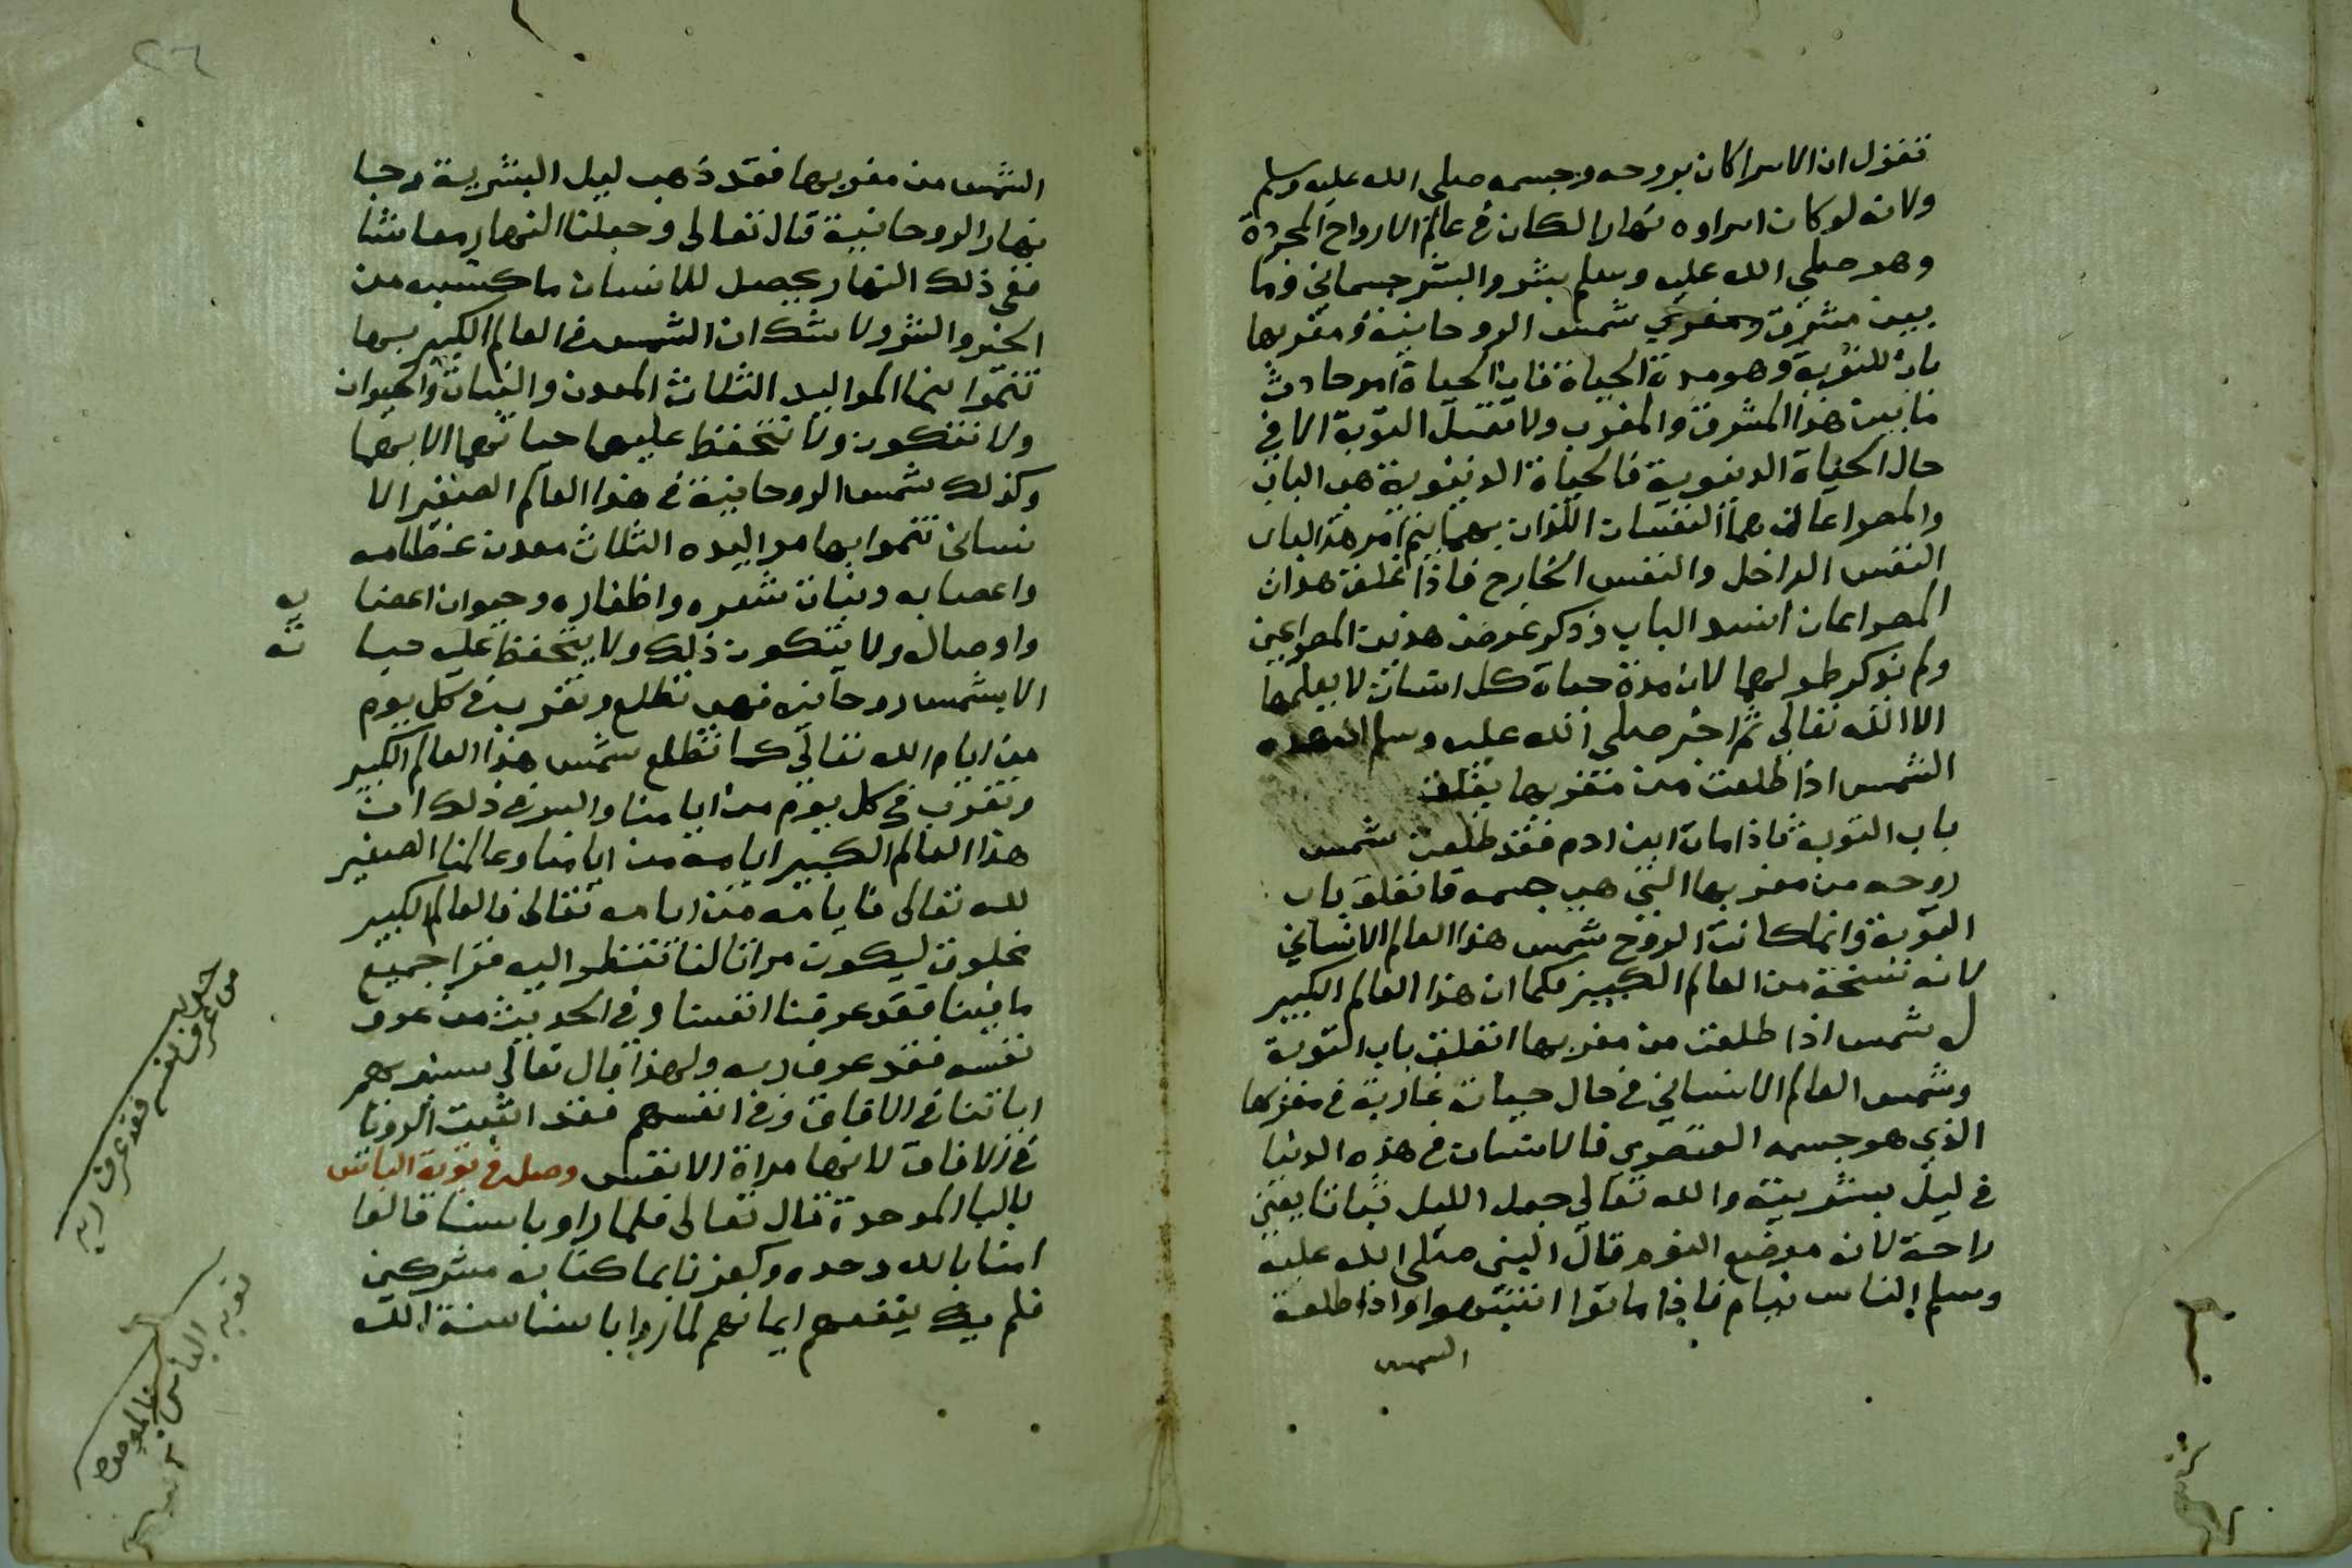 نقول ان الاسرا كان بروحه وجسمه صلى الله عليه وسلم
ولانه لو كان اسراوه نهارا لكان في عالم الارواح المجردة
وهو صلي الله عليه وسلم بشر والبشر جسماني وما
بين مشرق ومغرب شمس الروحانية ومغربها
باب للتوبة وهو مدة الحياة فان الحياة امر حادث
ما بين هذا المشرق والمغرب ولا تقبل التوبة الا في
حال الحياة الدنيوية فالحياة الدنيوية هي الباب
والمصراعان هما النفسان اللذان بهما يتم امر هذا الباب
النفس الداخل والنفس الخارج فاذا غلق هذان
المصراعان انسد الباب وذكر عرض هذين المصراعين
ولم نذكر طولهما لان مدة حياة كل انسان لا يعلمها
الا الله تعالي ثم اخبر صلي الله عليه وسلم ان هذه
الشمس اذا طلعت من مغربها يغلق
باب التوبة فاذا مات ابن ادم فقد طلعت شمس
روحه من مغربها التي هي جسمه فانغلق باب
التوبة وانما كانت الروح شمس هذا العالم الانساني
لانه نسخة من العالم الكبير فكما ان هذا العالم الكبير
له شمس اذا طلعت من مغربها انغلق باب التوبة
وشمس العالم الانساني في حال حياته غاربة في مغربها
الذي هو جسمه العنصري فالانسان في هذه الدنيا
في ليل بشريته والله تعالي جعل الليل سباتا يعني
راحة لانه موضع النوم قال النبي صلى الله عليه
وسلم الناس نيام فاذا ماتوا انتبهوا واذا طلعت
الشمس
٢٦
الشمس من مغربها فقد ذهب ليل البشرية وجا
نهار الروحانية قال تعالى وجعلنا النهار معاشا
ففي ذلك النهار يحصل للانسان ما كسبه من
الخير والشر ولا شك ان الشمس في العالم الكبير بها
تنموا بنما المواليد الثلاث المعدن والنبات والحيوان
ولا تتكون ولا تتحفظ عليها حياتهما الا بهما
وكذلك شمس الروحانية في هذا العالم الصغير الا
نساني تنموا بها مواليده الثلاث معدن عظامه
واعصابه ونبات شعره واظفاره وحيوان اعضا
يه
واوصاله ولا يتكون ذلك ولا يتحفظ عليه حيا
ته
الا بشمس روحانيه فهي تطلع وتغرب في كل يوم
من ايام الله تعالي كما تطلع شمس هذا العالم الكبير
وتغرب في كل يوم من ايامنا والسر في ذلك ان
هذا العالم الكبير ايامه من ايامنا وعالمنا الصغير
لله تعالى فايامه من ايامه تعالى فالعالم الكبير
مخلوق ليكون مراتا لنا ننظر اليه فنرا جميع
ما فينا فقد عرفنا انفسنا وفي الحديث من عرف
نفسه فقد عرف ربه ولهذا قال تعالي سنريهم
اياتنا في الافاق وفي انفسهم فقد اثبت الرويا
في الافاق لانها مراة الانفس وصل في توبة الباس
بالبا الموحدة قال تعالى فلما راو باسنا قالوا
امنا بالله وحده وكفرنا بما كنا به مشركين
فلم يك ينفعهم ايمانهم لما راوا باسنا سنة الله
من عرف نفسه فقد عرف ربه
توبه الباس
بالموحدة